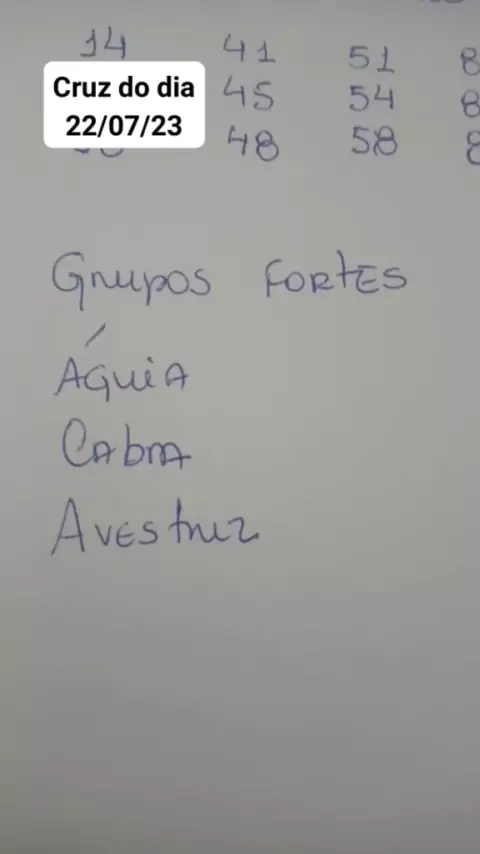 14 41 51 8
Cruz do dia
45 54 8
22/07/23
48 58 8
Grupos Fortes
Águia
Cabra
Avestruz